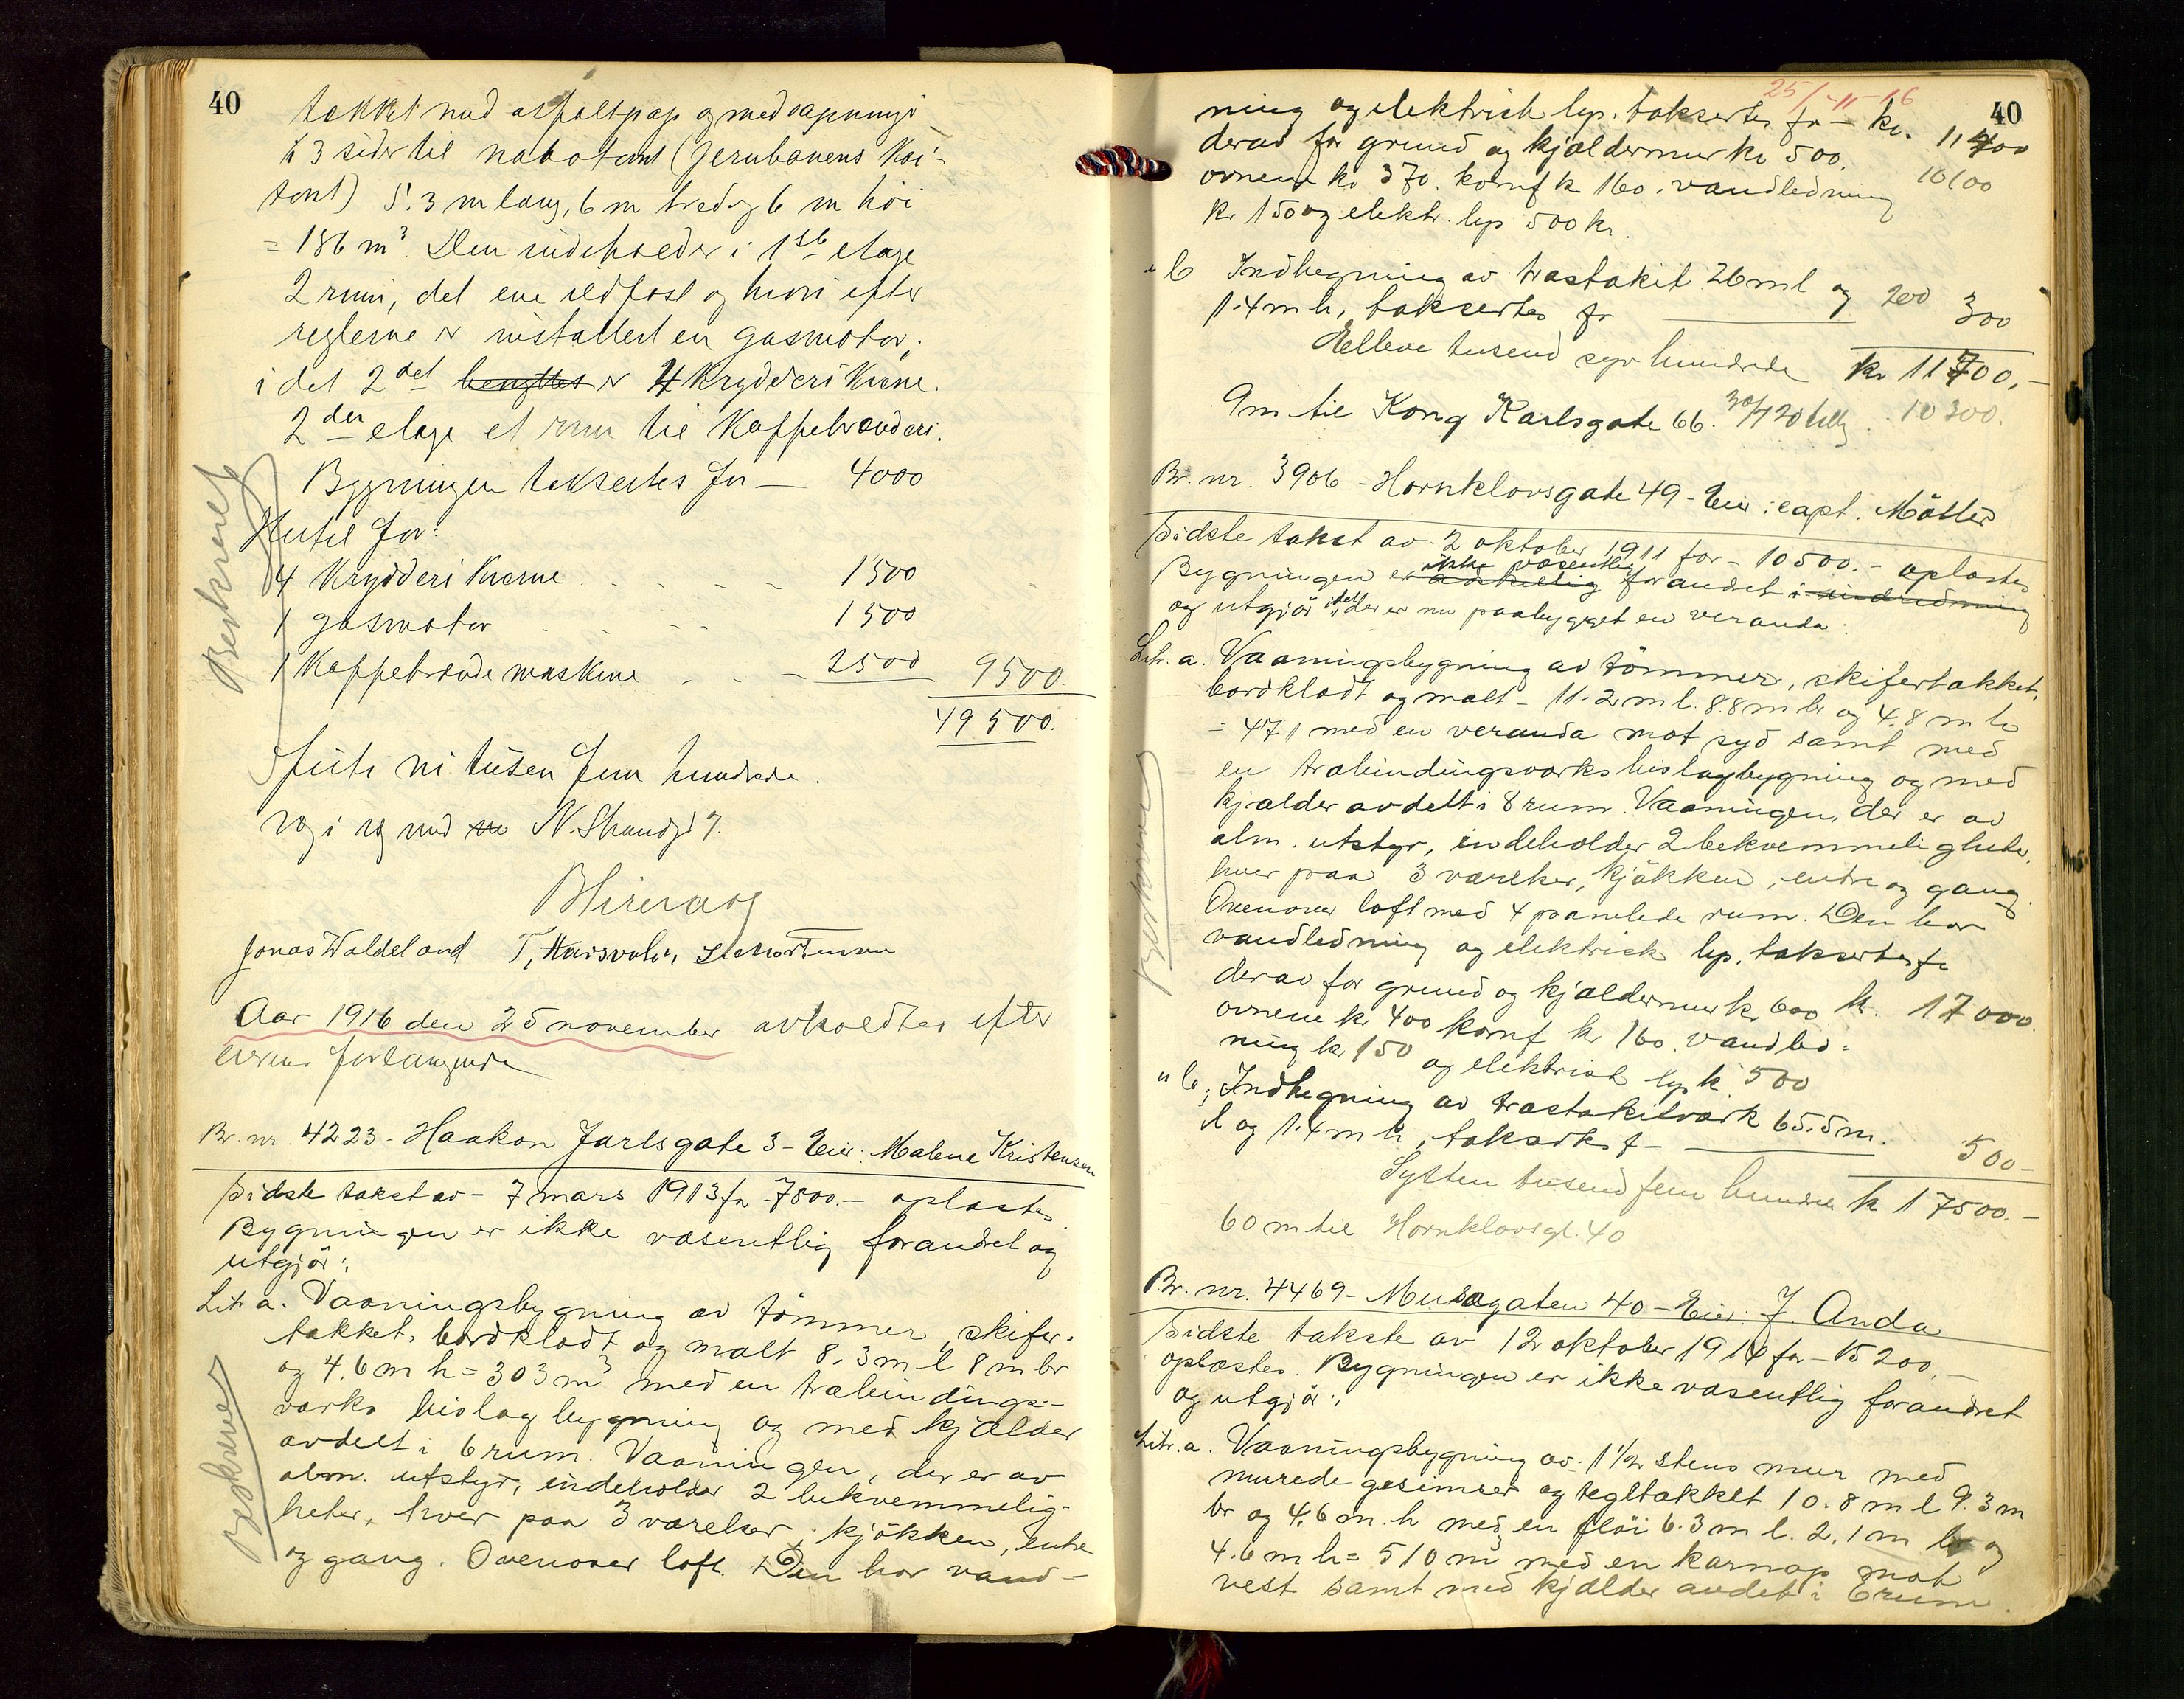 40
tækket med asfaltpap og med aapninger
i 3 sider til nabotomt (Jernbanens kai-
tomt) 5.3 m lang, 6 m bred og 6 m høi
= 186 m³. Den indeholder i 1ste etage
2 rum, det ene ildfast og hvori efter
reglerne er installert en gasmotor;
i det 2det benyttes er 4 krydderikverne.
2den etage et rum til kaffebrænderi.
Bygningen taksertes for — 4000
Hertil for:
4 krydderikverne . . . . 1500
1 gasmotor . . . . 1500
1 Kaffebrændemaskine . . . 2500 9500.
49500.
Beskrevet
Førti ni tusen fem hundrede.
væg i væg med no N. Strandgt 7.
Jonas Waldeland T. Haarsvolen
Aar 1916 den 25 november avholdtes efter
eierens forlangende
Br. nr. 4223 - Haakon Jarlsgate 3 - Eier: Malene Kristensen
Sidste takst av - 7 mars 1913 for - 7800.- oplæstes
Bygningen er ikke væsentlig forandret og
utgjör:
Litr a. Vaaningsbygning av tömmer, skifer-
tækket, bordklædt og malt 8.3 m l 8 m br
og 4.6 m h = 303 m³ med en træbindings-
verks bislagbygning og med kjælder
avdelt i 6 rum. Vaaningen, der er av
alm. utstyr, indeholder 2 bekvemmelig-
heter, hver paa 3 værelser, kjökken, entre
og gang. Ovenover loft. Den har vand-
Beskrevet
25/-11-16
40
ning og elektrisk lys. taksertes for - kr. 11400
derav for grund og kjældermur kr 500. 10100
ovnene kr 370. komf kr 160. vandledning
kr 150 og elektr. lys 500 kr.
" b Indhegning av træstakit 26 m l og 200 300
1.4 m h, taksertes for
Elleve tusend syv hundrede kr 11700,-
9 m til Kong Karlsgate 66. 30/7 20 10300.
Br. nr. 3906 - Hornklovsgate 49 - Eier: capt. Möller
Sidste takst av 2 oktober 1911 for - 10500.- oplæstes
ikke væsentlig
Bygningen er adskillig forandret i indredning
og utgjör idet der er nu paabygget en veranda:
Litr. a. Vaaningsbygning av tömmer, skifertækket,
bordklædt og malt - 11.2 m l. 8.8 m br og 4.8 m h
= 471 med en veranda mot syd samt med
en træbindingsverks bislagbygning og med
kjælder avdelt i 8 rum. Vaaningen, der er av
alm. utstyr, indeholder 2 bekvemmeligheter,
hver paa 3 værelser, kjökken, entre og gang.
Ovenover loft med 4 panelede rum. Den har
vandledning og elektrisk lys. taksertes for
derav for grund og kjældermur kr 600 kr. 17000
ovnene kr 400 komf kr 160. vandled-
ning kr 150 og elektrisk lys kr 500
" b; Indhegning av træstakitverk 65.5 m.
l og 1.4 m h, taksertes f - 500-
Sytten tusend fem hundrede kr 17500.-
Beskrevet
60 m til Hornklovsgt. 40
Br. nr. 4469 - Musægaten 40 - Eier: J. Anda
Sidste takste av 12 oktober 1914 for - 15200,-
oplæstes. Bygningen er ikke væsentlig forandret
og utgjör:
Litr. a. Vaaningsbygning av 1½ stens mur med
murede gesimser og tegltækket 10.8 m l 9.3 m
br og 4.6 m. h med en flöi 6.3 m l. 2.1 m br og
4.6 m h = 510 m³ med en karnap mot
vest samt med kjælder avdelt i 6 rum.